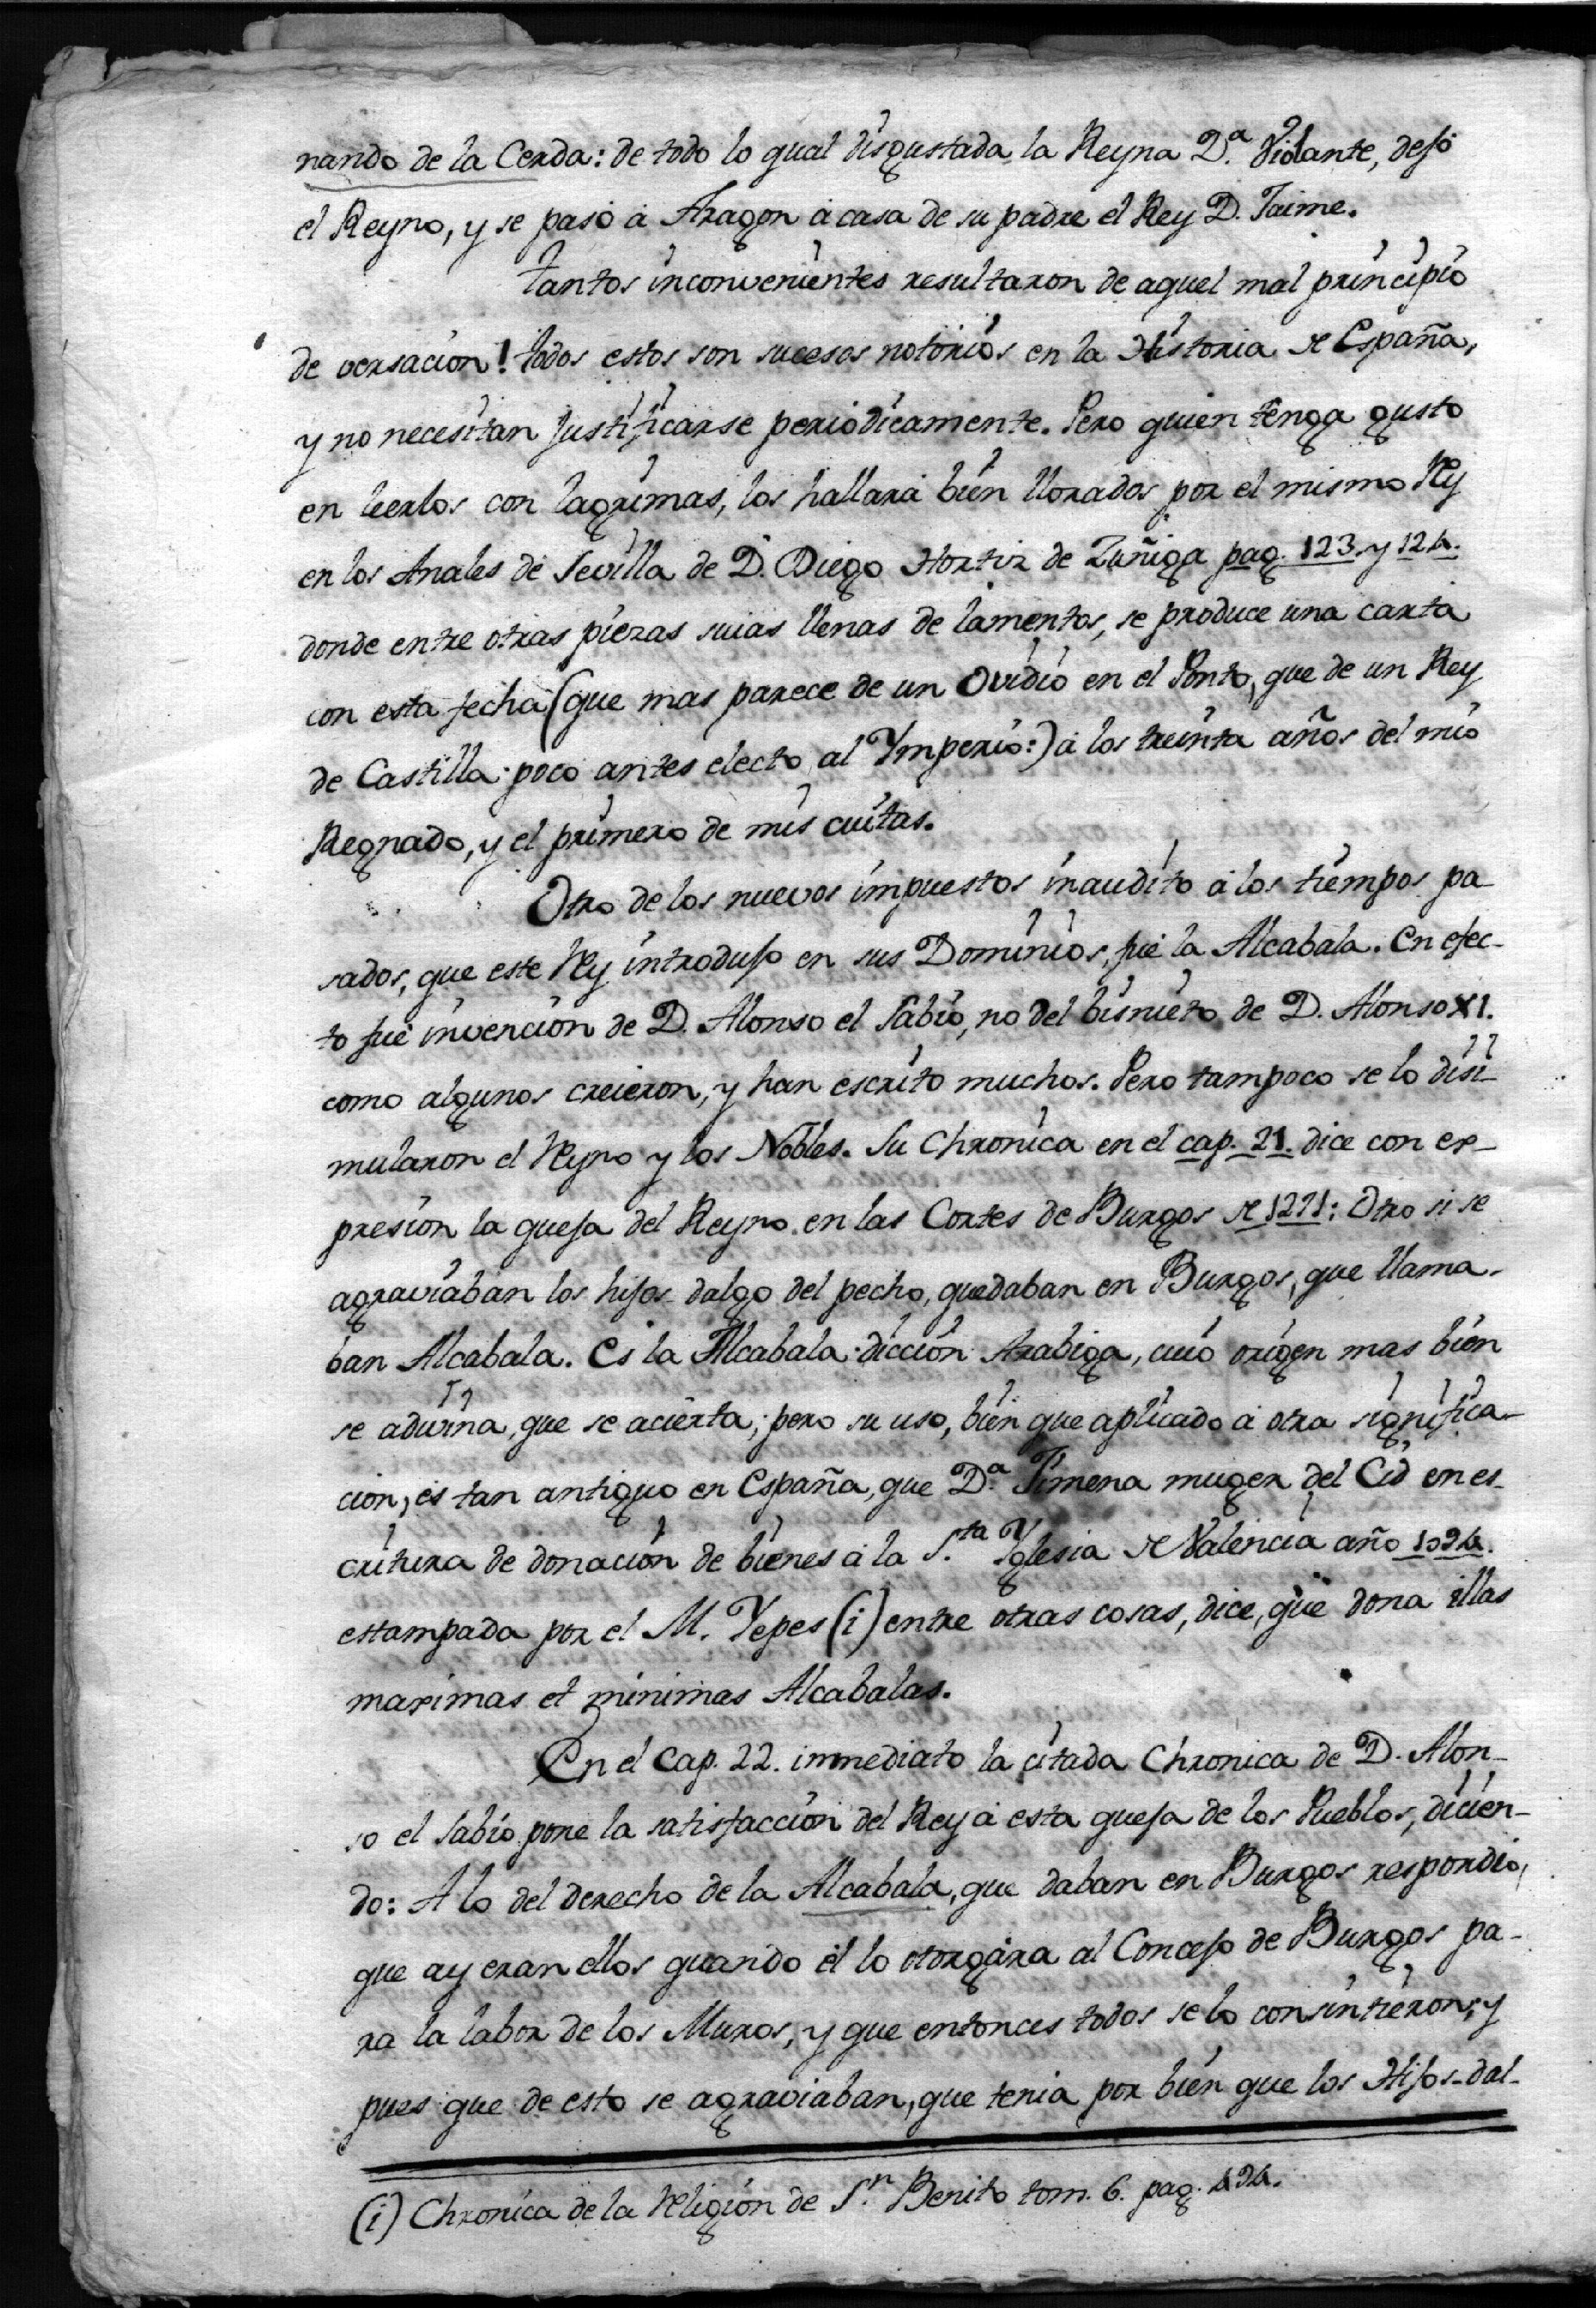 nando de la Cerda: de todo lo qual disgustada la Reyna D.ª Violante, dejó
el Reyno, y se pasó á Aragon á casa de su padre el Rey D. Jaime.
Tantos inconvenientes resultaron de aquel mal principio
de versacion! todos estos son sucesos notorios en la Historia de España,
y no necesitan justificarse periodicamente. Pero quien tenga gusto
en leerlos con lagrimas, los hallará bien llorados por el mismo Rey
en los Anales de Sevilla de D. Diego Hortiz de Zuñiga pag. 123. y 124.
donde entre otras piezas suias llenas de lamentos, se produce una carta
con esta fecha (que mas parece de un Ovidio en el Ponto, que de un Rey
de Castilla poco antes electo al Ymperio:) á los treinta años del mio
Regnado, y el primero de mis cuitas.
Otro de los nuevos impuestos inaudito á los tiempos pa-
sados, que este Rey introdujo en sus Dominios, fué la Alcabala. En efec-
to fué invencion de D. Alonso el Sabio, no del bisnieto de D. Alonso XI.
como algunos creieron, y han escrito muchos. Pero tampoco se lo disi-
mularon el Reyno y los Nobles. Su Chronica en el cap. 21. dice con ex-
presion la queja del Reyno en las Cortes de Burgos de 1271: Otro si se
agraviaban los hijos-dalgo del pecho, que daban en Burgos, que llama-
ban Alcabala. Es la Alcabala diccion Arabiga, cuio origen mas bien
se adivina, que se acierta; pero su uso, bien que aplicado á otra significa-
cion, es tan antiguo en España, que D.ª Jimena muger del Cid en es-
critura de donacion de bienes á la S.ta Yglesia de Valencia año 1094.
estampada por el M. Yepes (i) entre otras cosas, dice, que dona illas
maximas et minimas Alcabalas.
En el Cap. 22. inmediato la citada Chronica de D. Alon-
so el Sabio pone la satisfaccion del Rey á esta queja de los Pueblos, dicien-
do: A lo del derecho de la Alcabala, que daban en Burgos respondió,
que ay eran ellos quando él lo otorgára al Concejo de Burgos pa-
ra la labor de los Muros, y que entonces todos se lo consintieron; y
pues que de esto se agraviaban, que tenia por bien que los Hijos-dal-
(i) Chronica de la Religion de S.n Benito tom. 6. pag. 494.